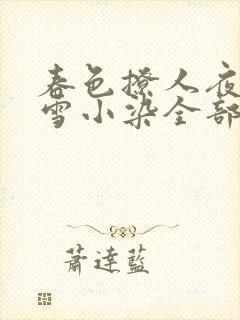 春色撩人夜
雪小染全部
萧達藍